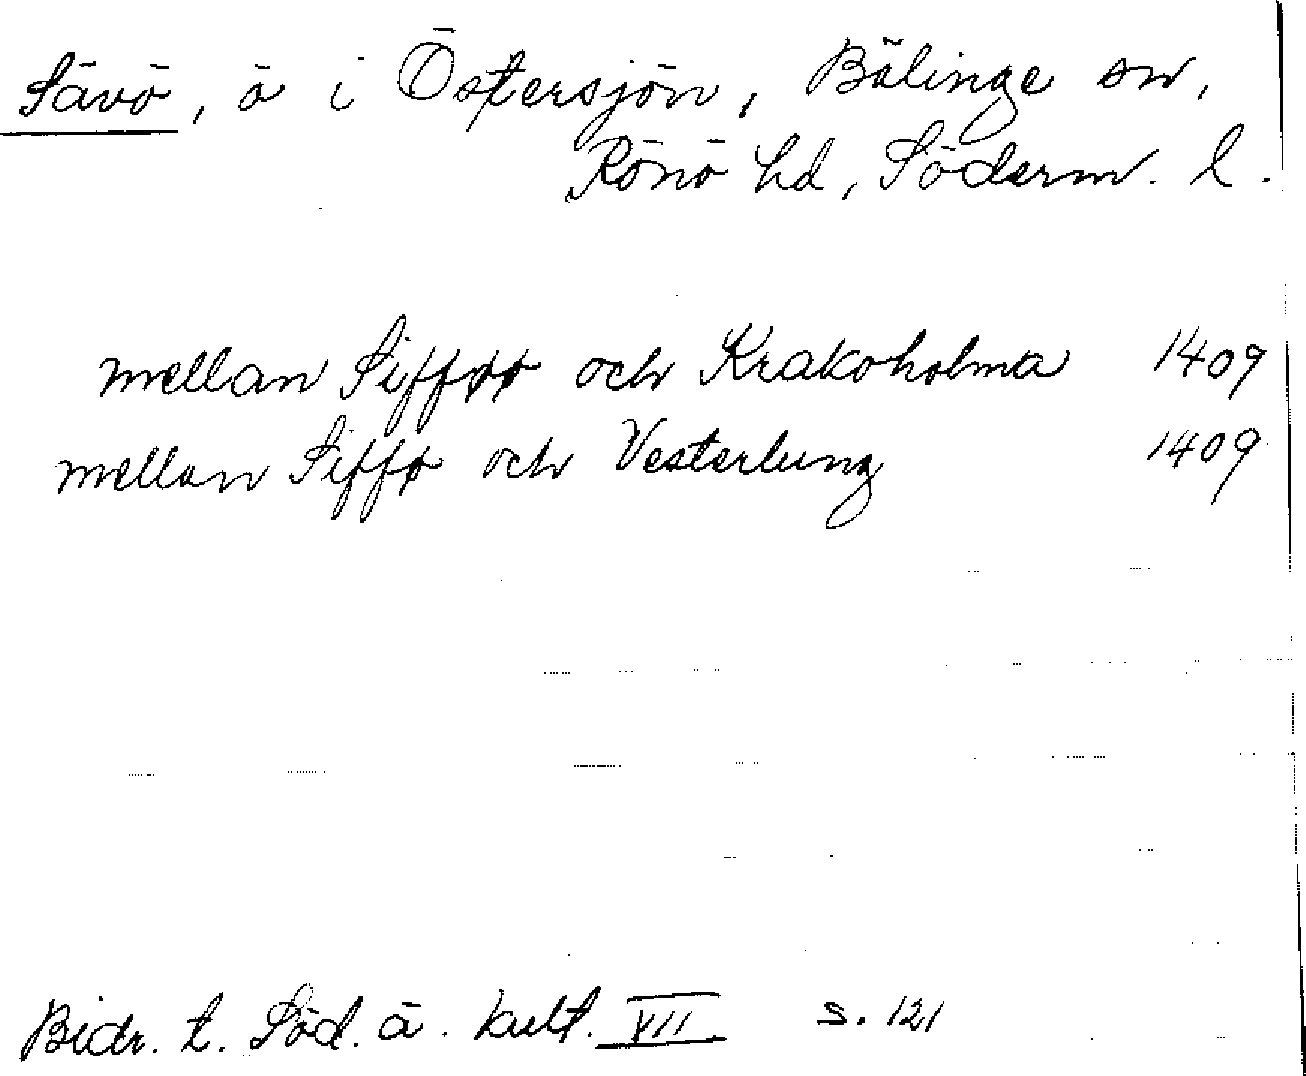 Sävö, ö i Östersjön, Bälinge sn,
Rönö hd, Söderm. l.
mellan Sifføø och Krakoholma 1409
mellan Siffø och Vesterlung 1409
Bidr. t. Söd. ä. kult. VII s. 121